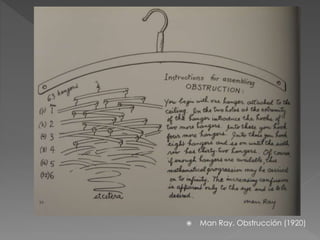 Instructions for assembling
OBSTRUCTION:
63 hangers
You begin with one hanger attached to the
ceiling. In the two holes at the extremity
of the hanger introduce the hooks of
two more hangers. Into these you hook
four more hangers. Into these you hook
eight hangers and so on until the sixth
row has thirty two hangers. Of course
if enough hangers are available, this
mathematical progression may be carried
on to infinity. The increasing confusion
is apparent only to the eye and is to be
desired.
Man Ray
1
2
3
(8) 4
5
6
etcetera
Man Ray, Obstrucción (1920)